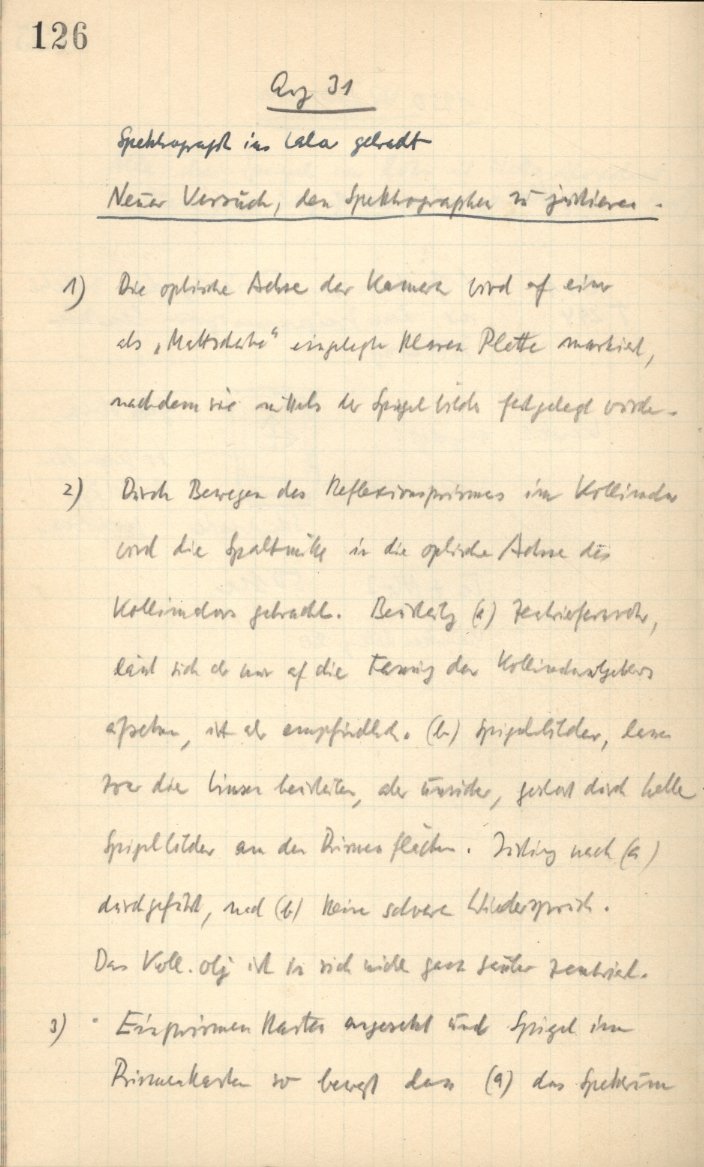 126
Aug 31
Spektrograph ins Labor gebracht
Neuer Versuch, den Spektrographen zu justieren.
1) Die optische Achse der Kamera wird auf einer
als „Mattscheibe“ eingelegten klaren Platte markiert,
nachdem sie mittels der Spiegelbilder festgelegt wurde.
2) Durch Bewegen des Reflexionsprismas im Kollimator
wird die Spaltmitte in die optische Achse des
Kollimators gebracht. Beurteilg (a) Zentrierfernrohr,
lässt sich aber nur auf die Fassung der
aufsetzen, ist aber empfindlich. (b) Spiegelbilder, lassen
zwar die Linsen beurteilen, aber unsicher, gestört durch helle
Spiegelbilder an den Prismenflächen. Justierg nach (a)
durchgeführt, nach (b) kein schwerer Wiederspruch.
Das Koll. obj ist in sich nicht ganz sauber zentriert.
3) Einprismen Kasten angesetzt und Spiegel im
Prismenkasten so bewegt dass (a) das Spektrum